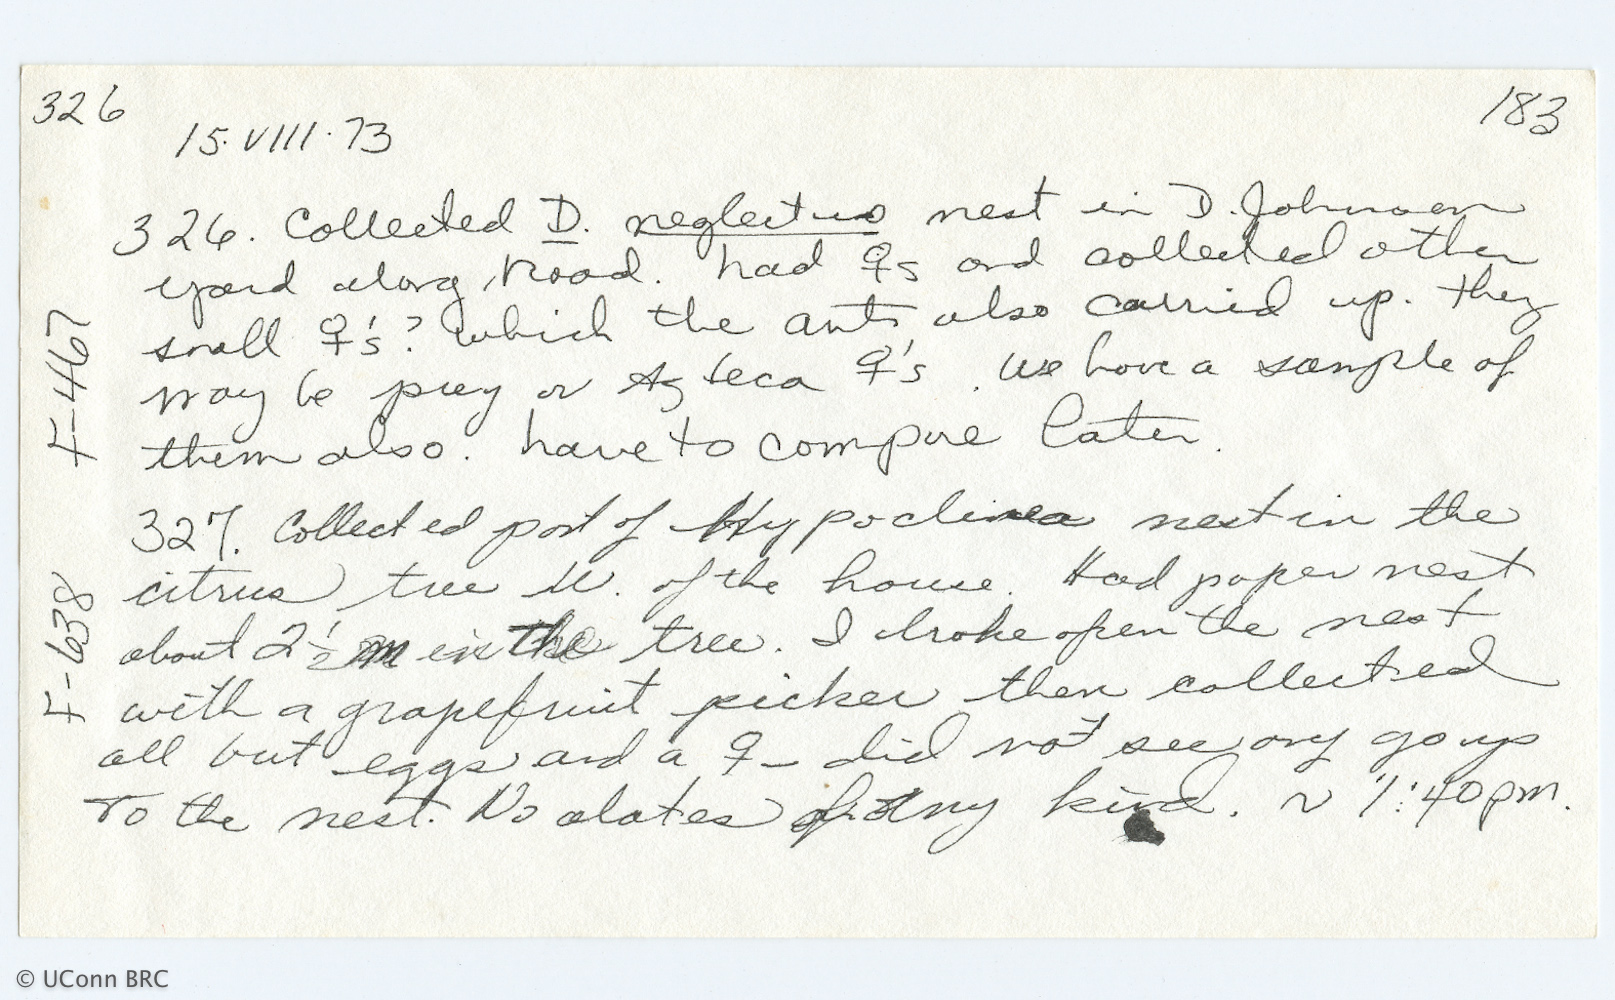 326
183
15.VIII.73
326. Collected D. neglectus nest in D. Johnson
yard along road. had ♀s and collected other
small ♀'s? which the ants also carried up. They
may be prey or Azteca ♀'s. We have a sample of
them also. have to compare later.
327. Collected part of Hypoclinea nest in the
citrus tree W. of the house. Had paper nest
about 2½ m in the tree. I broke open the nest
with a grapefruit picker then collected
all but eggs and a ♀ - did not see any go up
To the nest. No alates of any kind. ~ 1:40 pm.
F-467
F-638
© UConn BRC